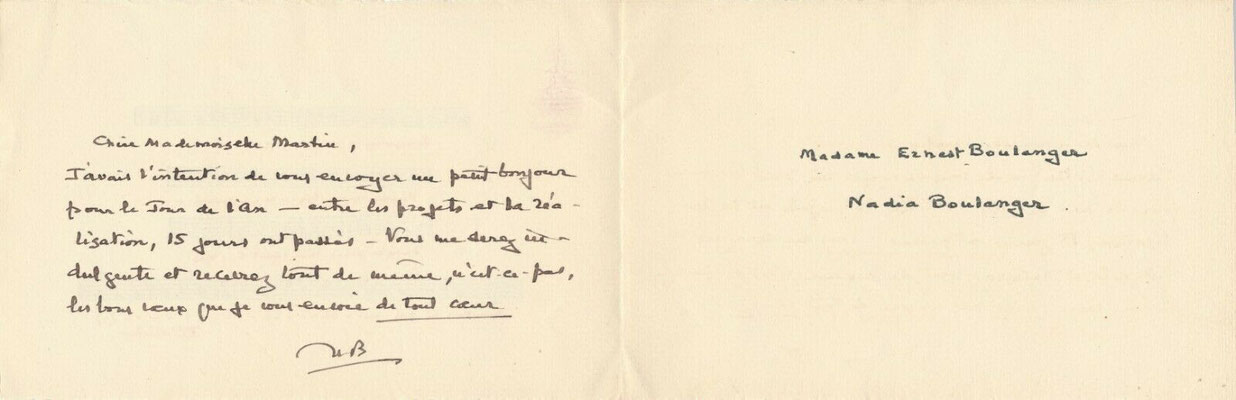 Chère Mademoiselle Martin,
J'avais l'intention de vous envoyer un petit bonjour
pour le Jour de l'An — entre les projets et la réa-
lisation, 15 jours ont passés — Vous me serez in-
dulgente et recevrez tout de même, n'est-ce-pas,
les bons vœux que je vous envoie de tout cœur
NB
Madame Ernest Boulanger
Nadia Boulanger.